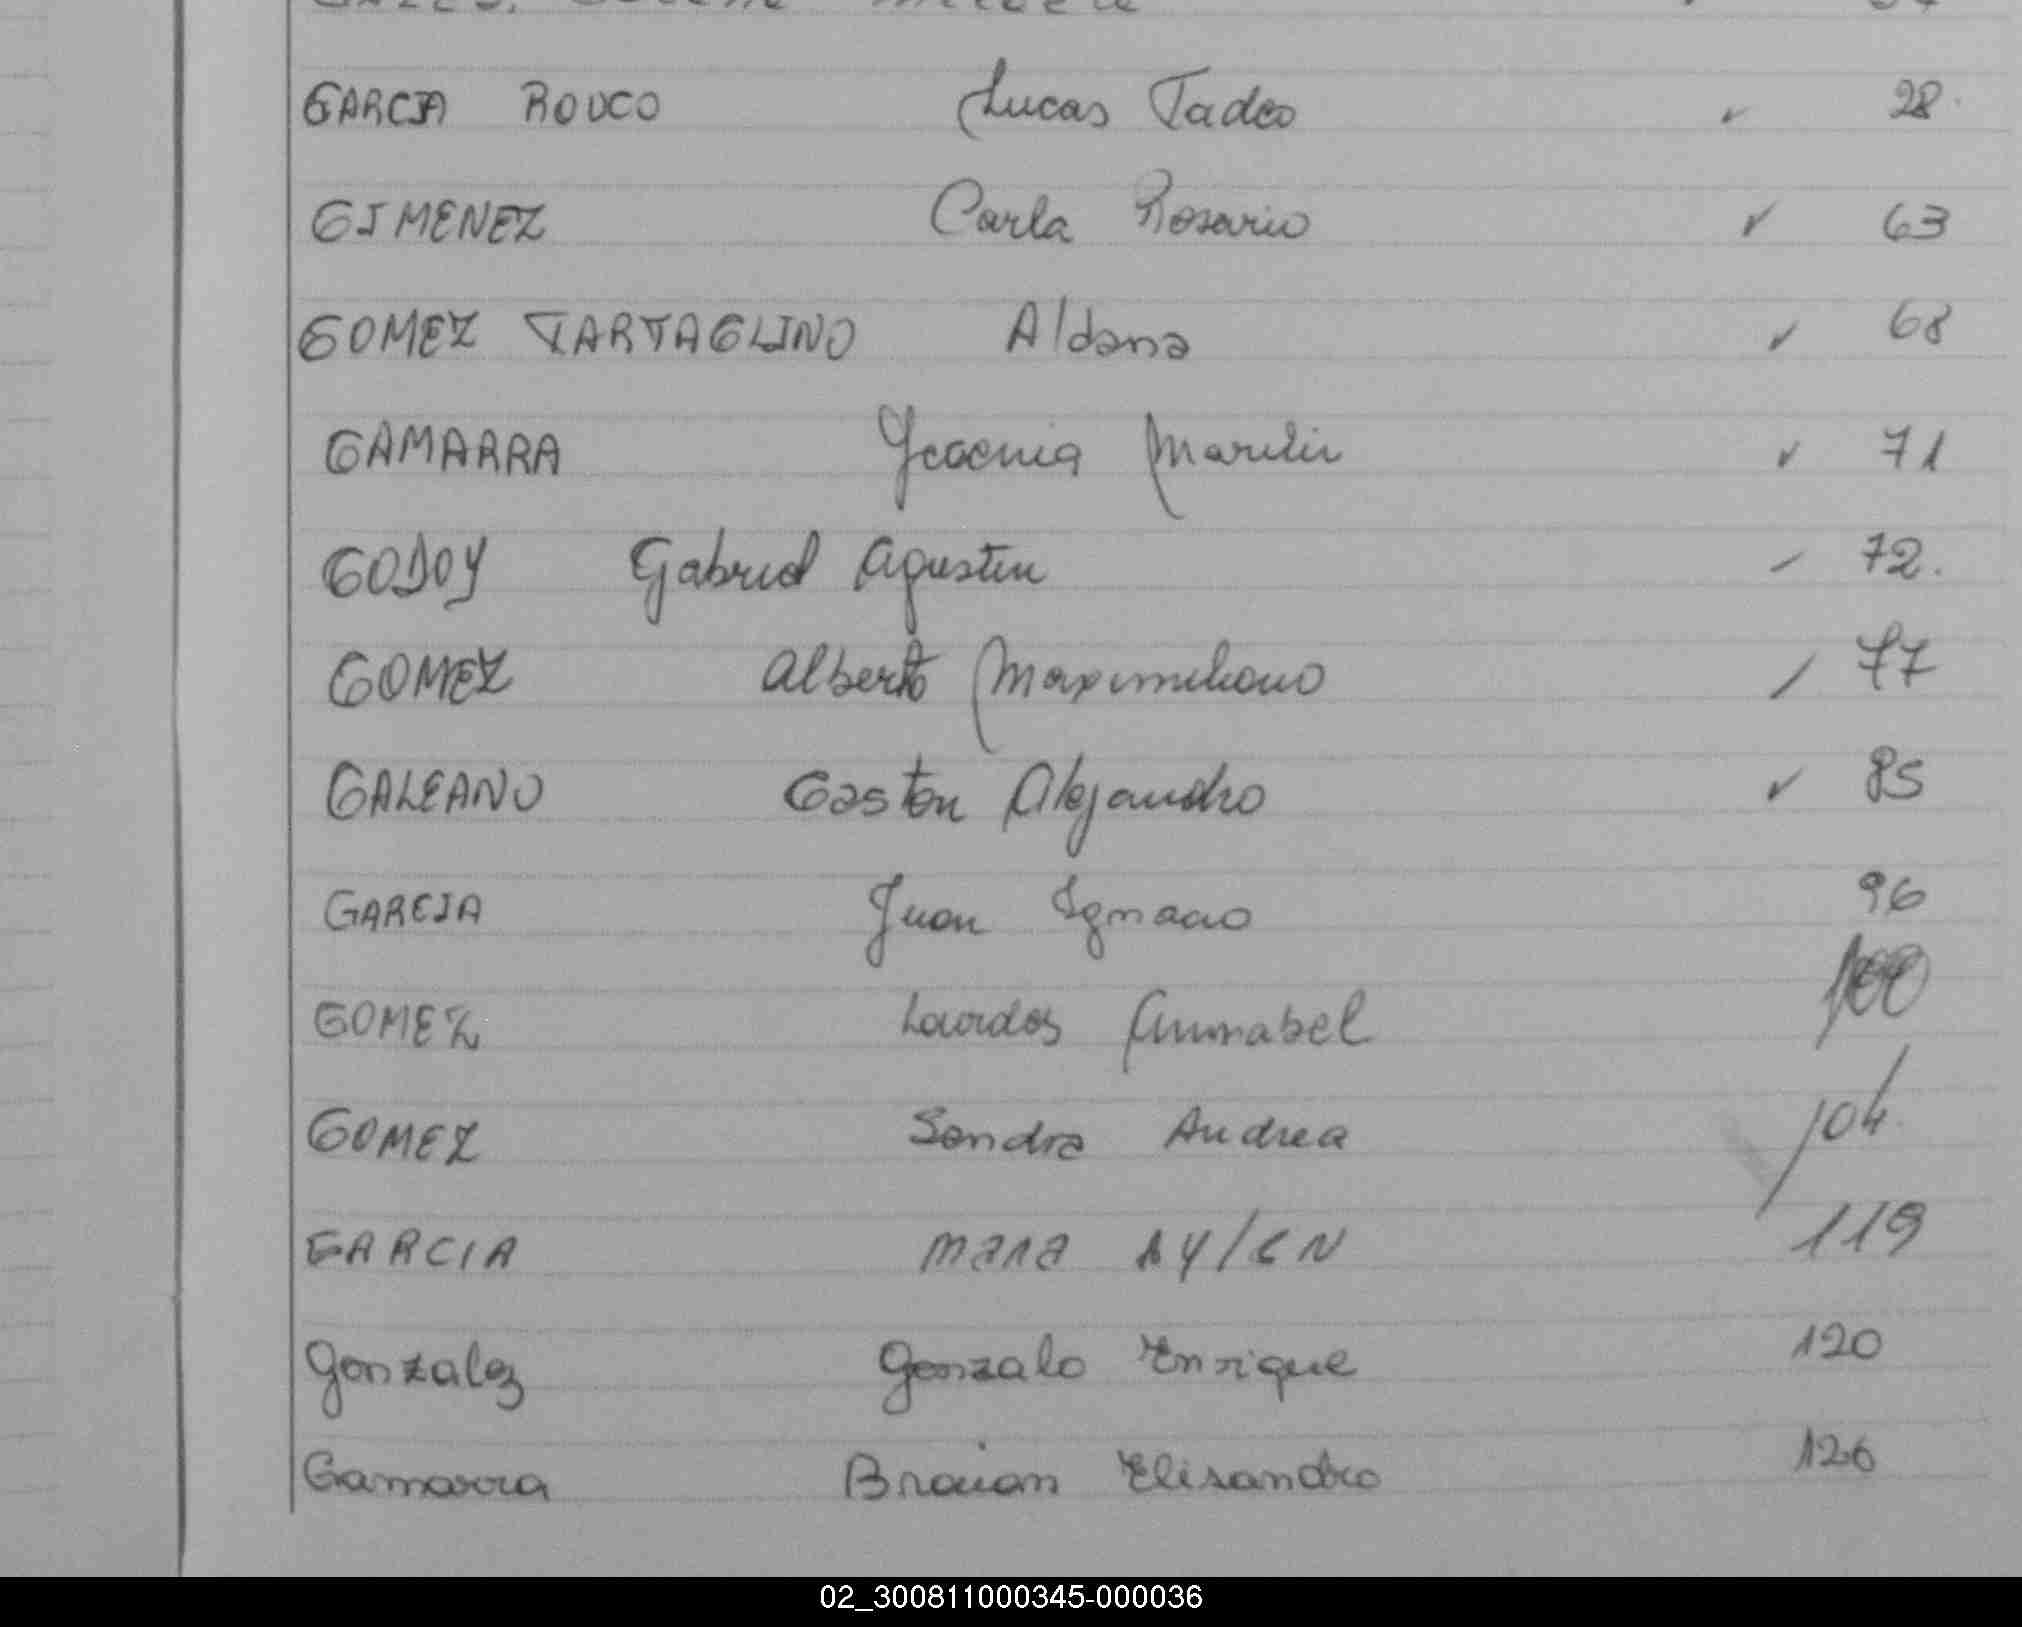 GARCIA ROUCO Lucas Tadeo ✓ 28.
GIMENEZ Carla Rosario ✓ 63
GOMEZ TARTAGLINO Aldana ✓ 68
GAMARRA Marilin ✓ 71
GODOY Gabriel Agustin 72.
GOMEZ Alberto Maximiliano 77
GALEANO Gaston Alejandro ✓ 85
GARCIA Juan Ignacio 96
GOMEZ Lourdes Annabel 100
GOMEZ Sandra Andrea 104
GARCIA mara AYlEN 119
Gonzalez Gonzalo Enrique 120
Gamarra Braian Elisandro 126
02_300811000345-000036